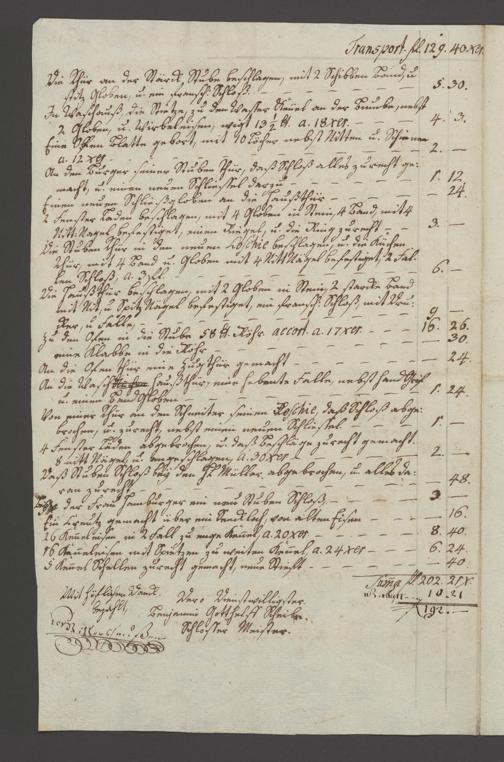 Transport. fl. 129. 40. xer.
Die Thür an der Stube beschlagen, mit 2 Schibben Band, u
Stitz Globen, u. ein französ. Schloß — 5. 30.
Im Waschhauß, die Stütze, zu den Wasser Kännel an der
2 Globen, u. wigt 13 1/2 ℔. a. 18 xer. — 4. 3.
Eine Offen Platte gebort, mit 10 Löcher nebst Nitten u. Schienen
a. 12 xer — 2. —
An den Bürger seiner Stuben Thür, daß Schloß alles zurecht ge-
macht, u. einen neuen Schliessel darzu — 1. 12
Einen neuen Schließgloben an die Haußthür — 24.
2 Fenster Laden beschlagen, mit 4 Globen in Stein, 4 Band, mit 4
Nitt Nägel befestiget, einen Riegel, u. die Ring zurecht — 3. —
Die Stuben Thür in den neuen Loschie beschlagen, u. die Küchen
Thür, mit 4 Band u. Globen mit 4 Nitt Nägel befestiget, 2 Fal-
len Schloß, a. 3 fl. — 6. —
Die Haußthür beschlagen, mit 2 Globen in Stein, 2 starcke Band
mit Nit, u. Spitz Nägel befestiget, ein französ. Schloß mit Drü-
cker, u. Falle — 9 —
Zu den Ofen in die Stube 58 ℔. Rohr accort. a. 17 xer. — 16. 26.
eine Klabbe in die Rohr — 30.
An die Ofen thür eine Zugthür gemacht — 24.
An die Wasch haußthür, eine hebente Falle, nebst Hand Griff
u. einen Band Globen — 1. 24.
Von einer Thür an den Schmiter seinen Loschie, daß Schloß abge-
brochen, u. zurecht, nebst einen neuen Schliessel — 1. —
4 Fenster Laden abgebrochen, u. daß Beschläge zurecht gemacht.
8 nitt Nägel, u. angeschlagen, a. 30 xer — 2. —
Daß Stuben Schloß bey den H. Müller abgebrochen, u. alles da-
ran zurecht — 48.
der Frau Hamburger ein neu Stuben Schloß — 3 —
Ein Creutz gemacht über ein Sandloch, von alten Eisen — 16.
26 Kännel Eisen a. 20 xer — 8. 40.
16 Kännel Eisen mit Spitzen zu weiten Kännel a. 24 xer — 6. 24.
5 Kännel Schellen zurecht gemacht, neue — 40
Suma fl 202. 21 x.
10. 21
192. —
Mit höflichen Danck
bezahlt.
Dero Dienstwilligster
Benjamin Gotthelff Scheibe.
Schlosser Meister.